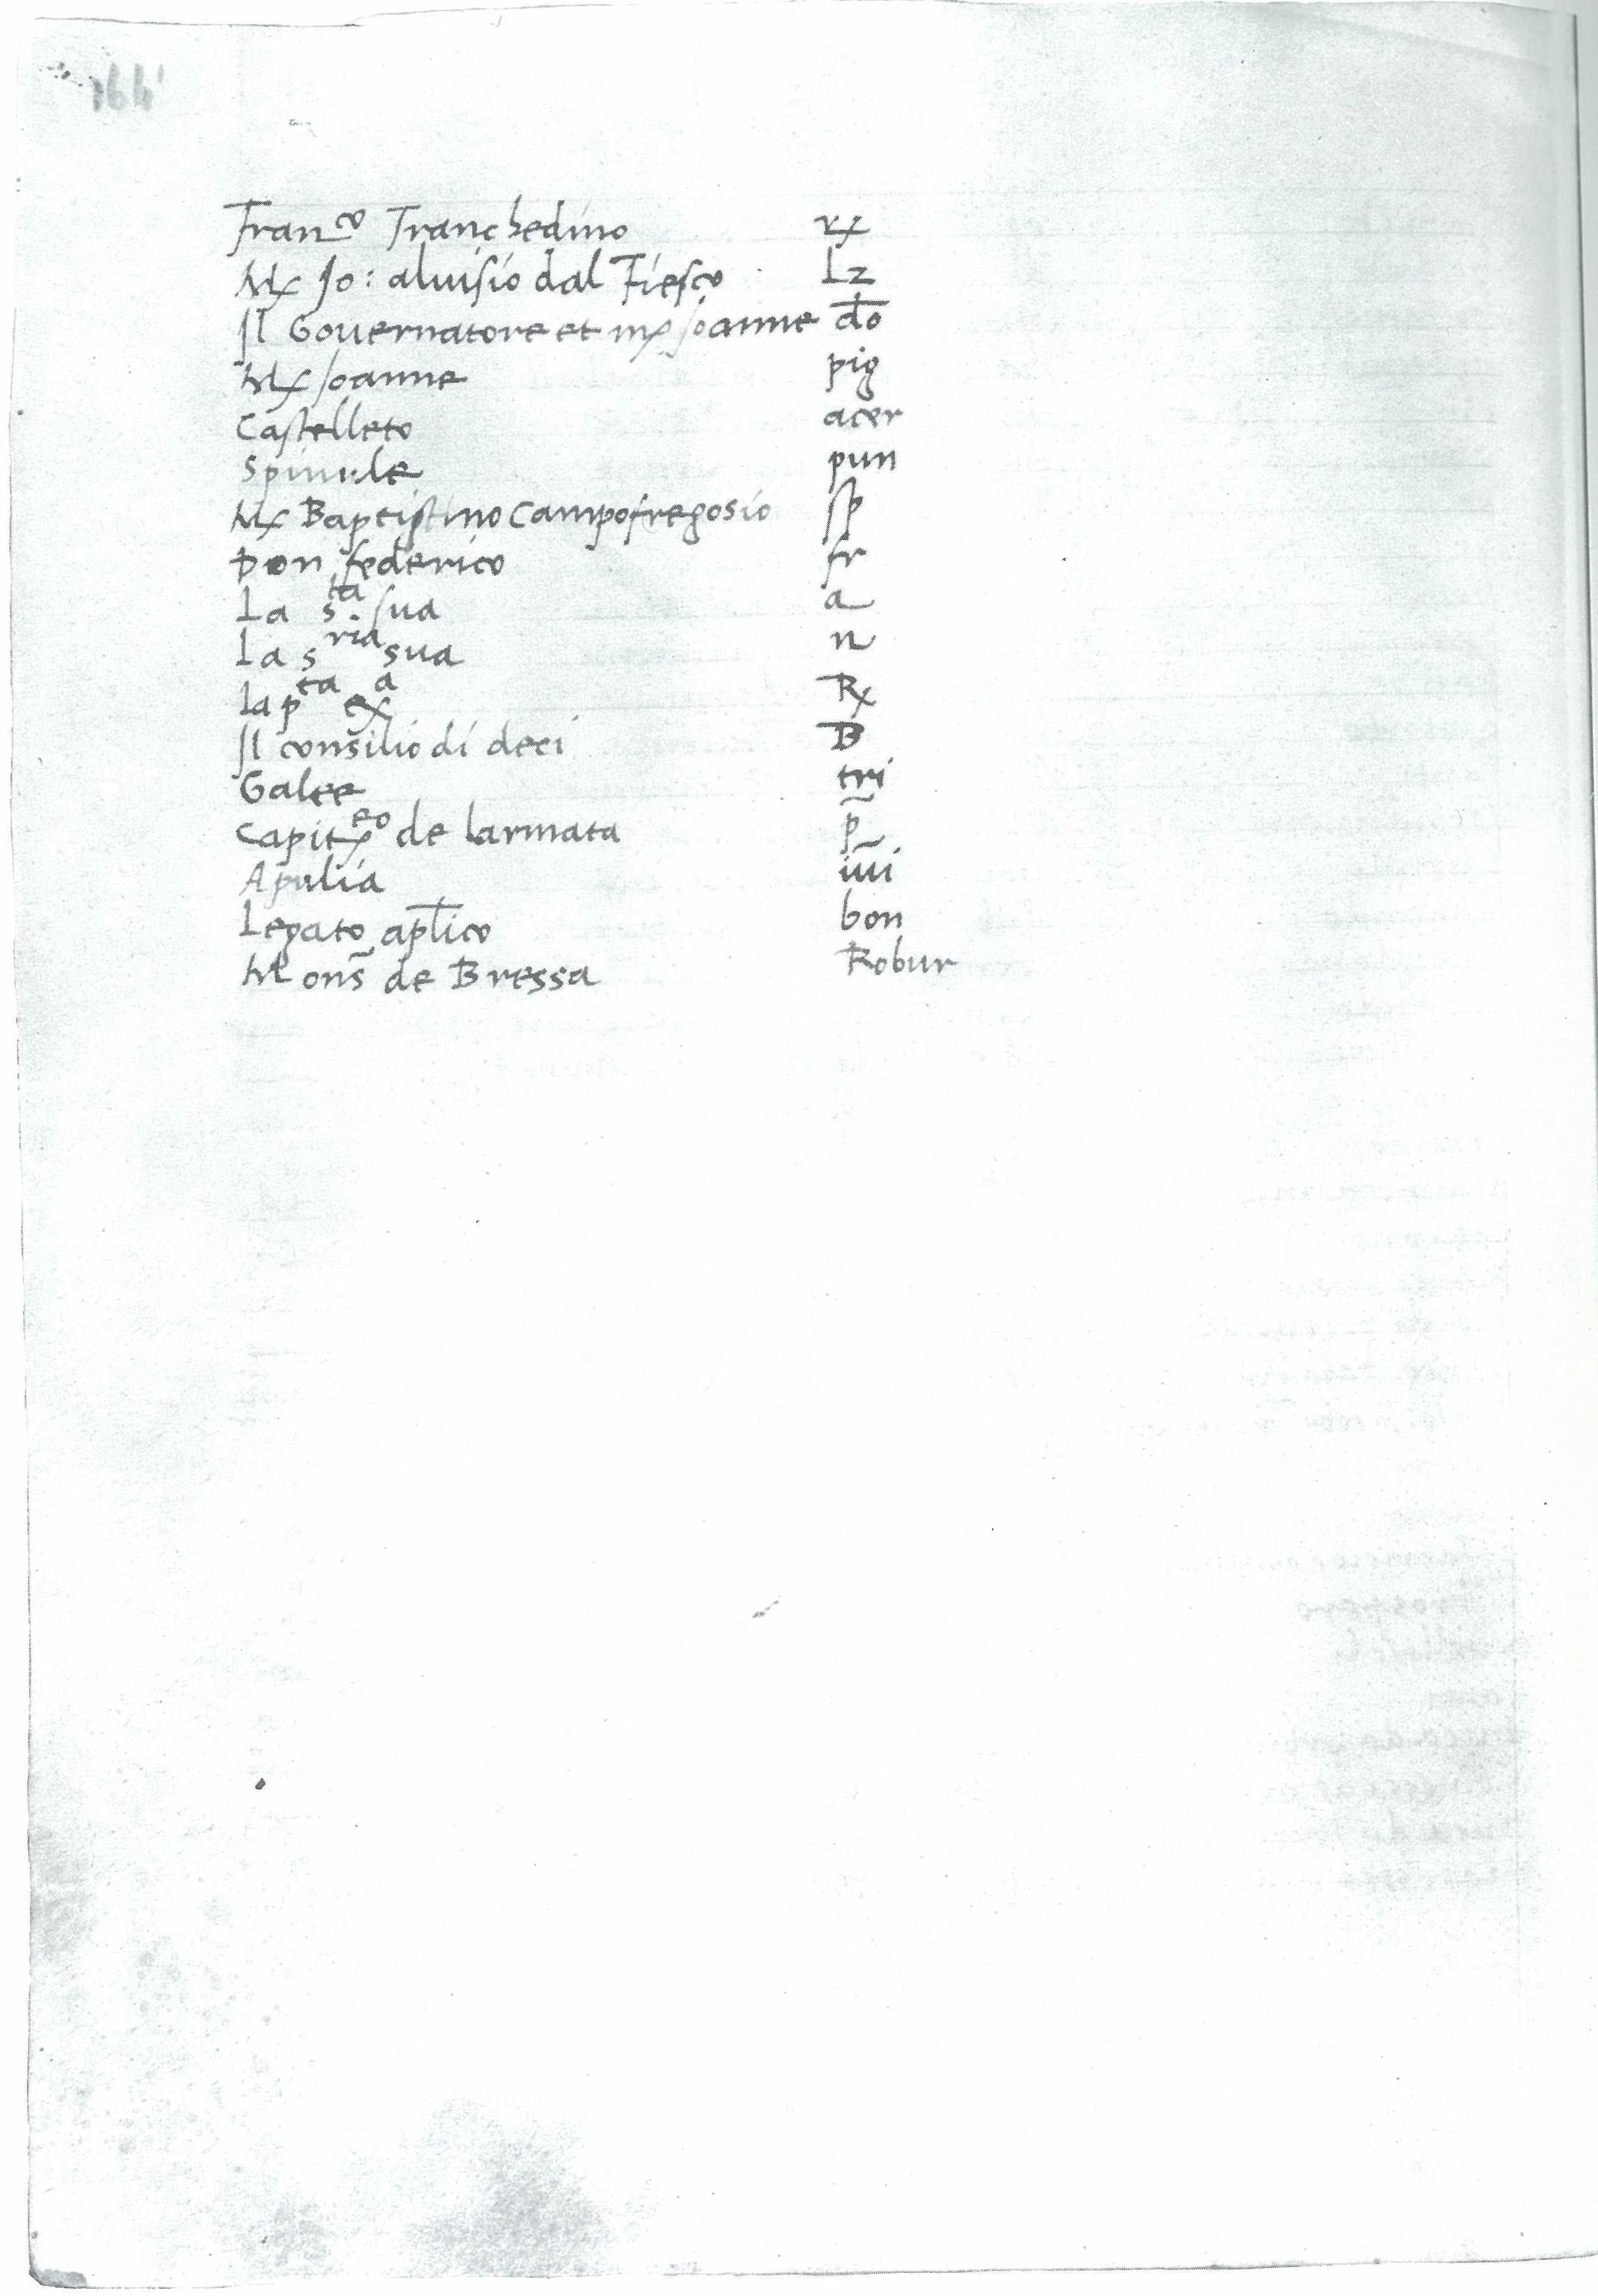 164'
Fran^co Tranchedino rx
Mx Jo: aluisio dal Fiesco Lz
Il Gouernatore et mx Joanne d̄o
Mx Joanne pig
Castelleto acer
Spinule pun
Mx Baptistino Campofregosio sp
Don federico fr
La s^ta. sua a
La s^ria sua n
la p^ta ex^a Rx
Il consilio di deci B
Galee tri
Capit^eo de larmata p̃
Apulia iūi
Legato ap̄lico bon
Mons̃ de Bressa Robur